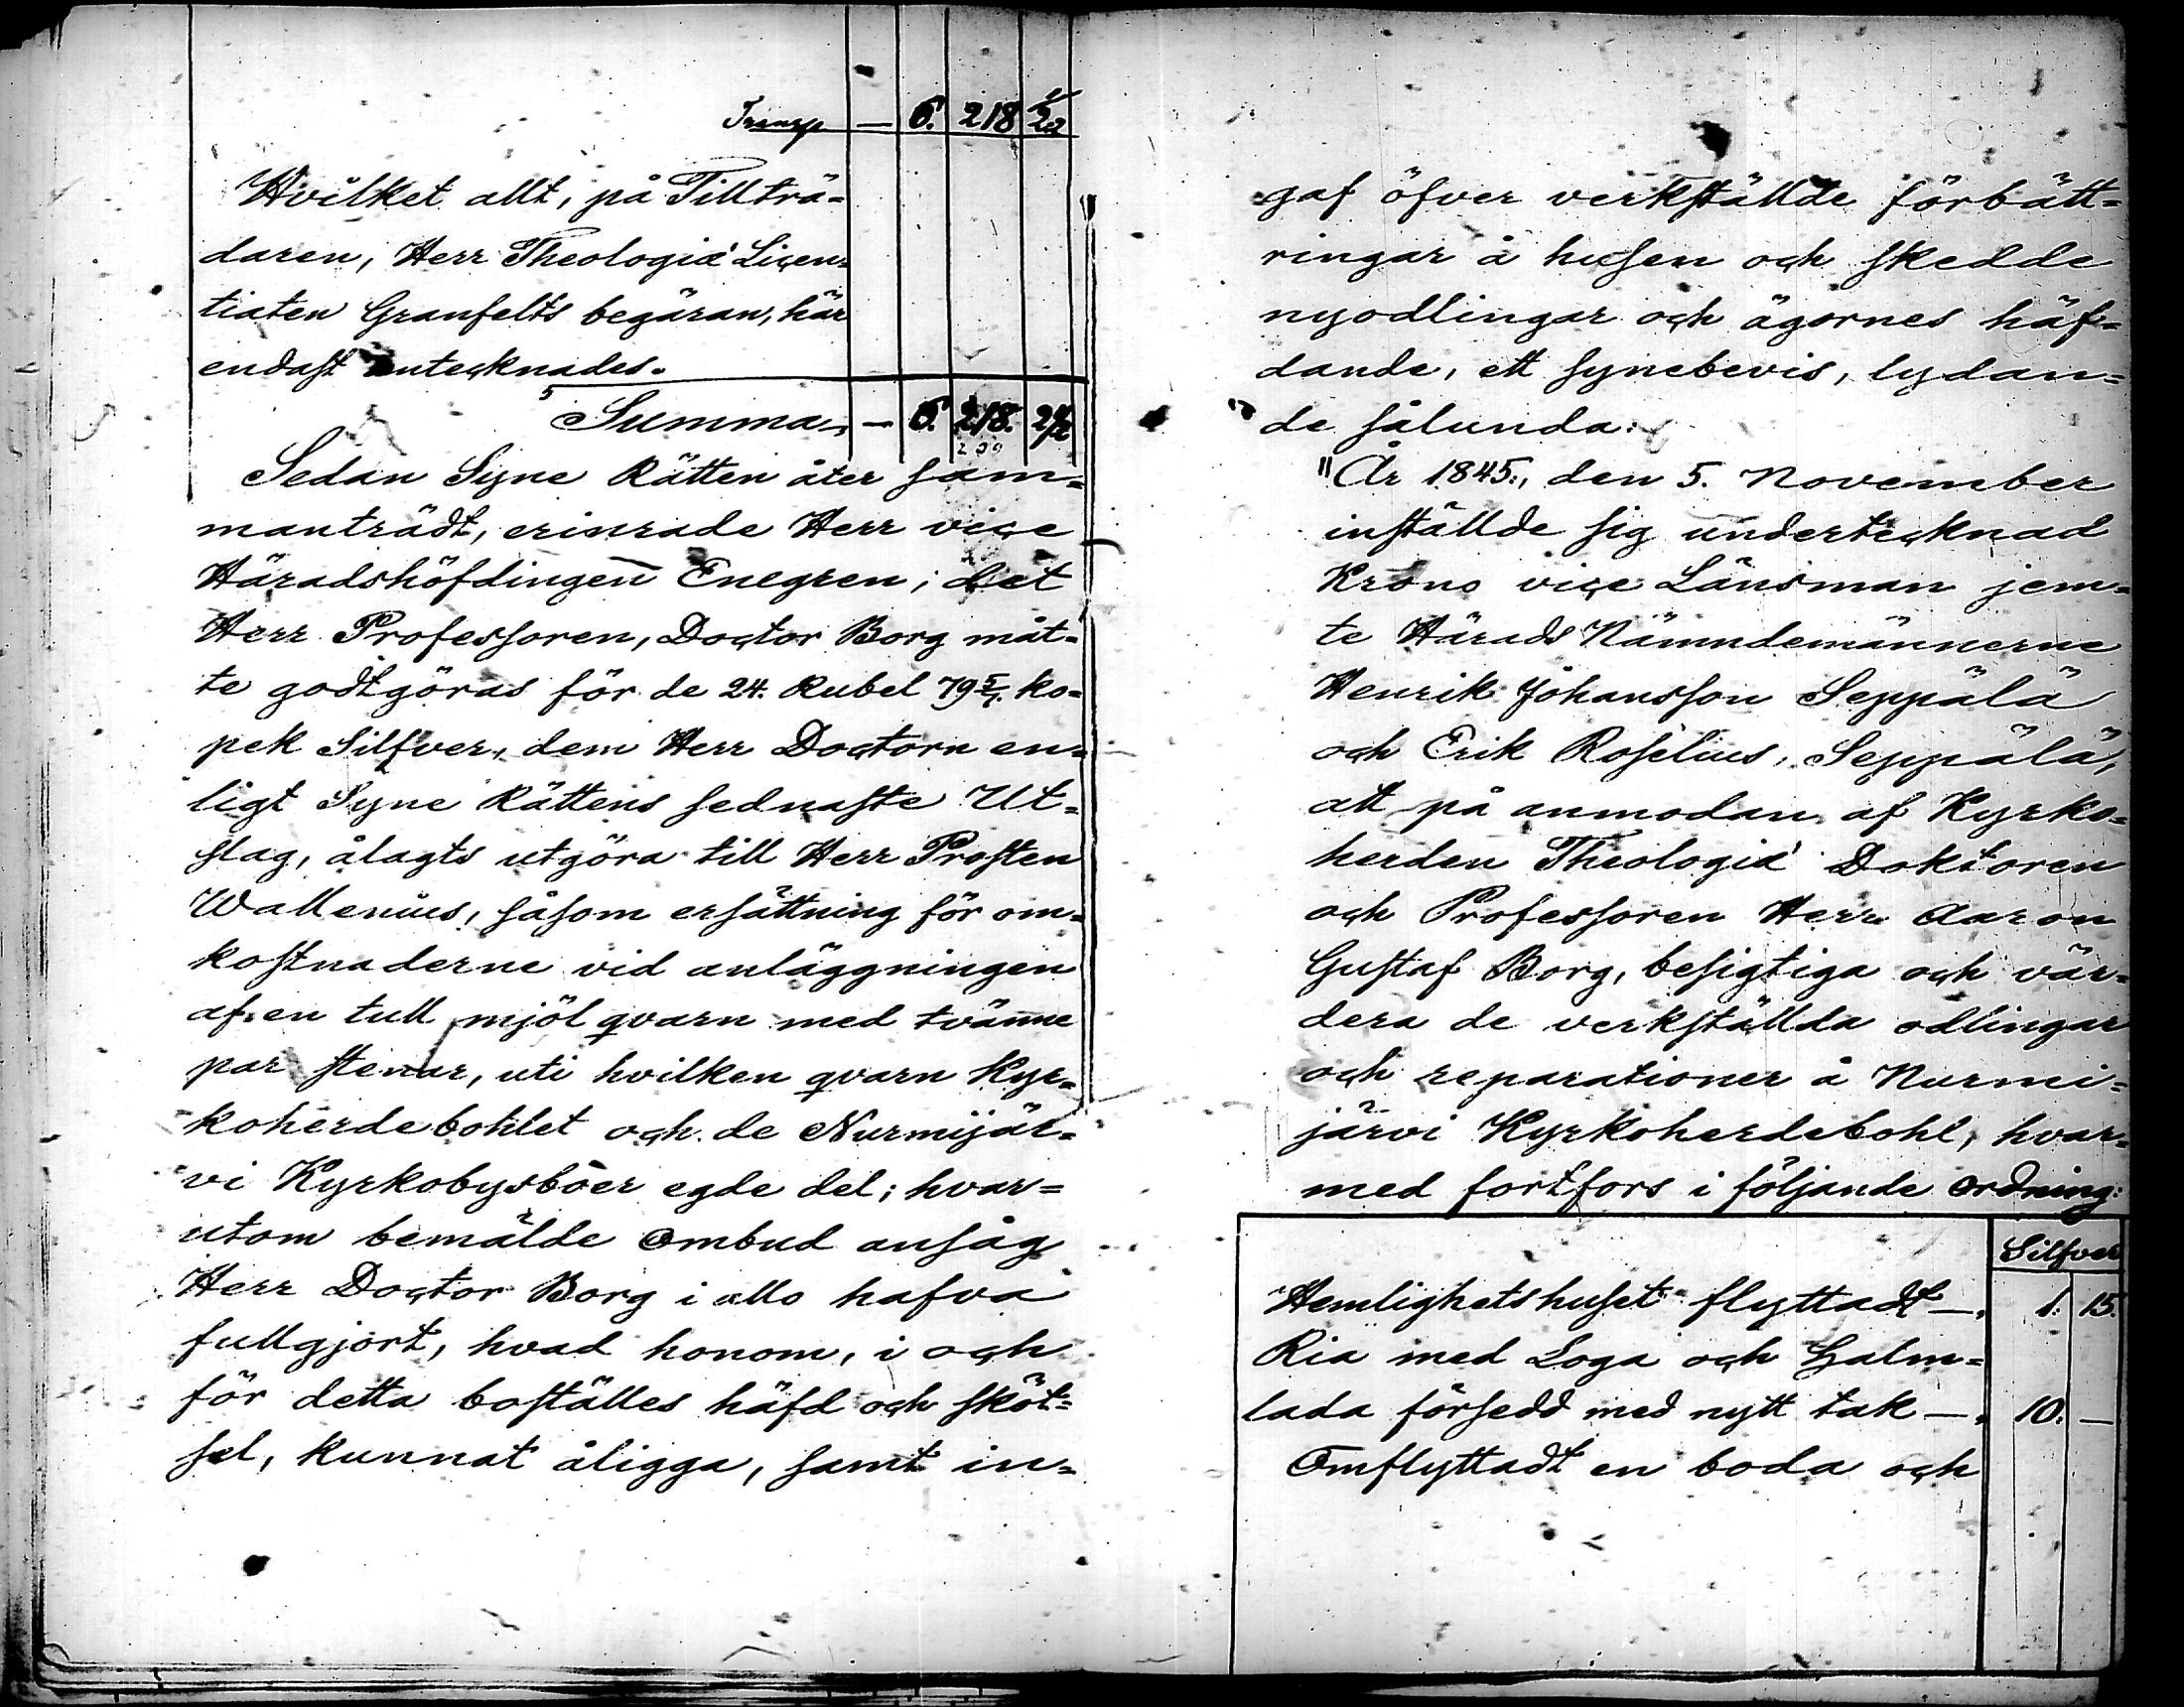 Transp — 6. 218 1/22
Hvilket allt, på Tillträ=
daren, Herr Theologiæ Licen=
tiaten Granfelts begäran, här
endast antecknades.
Summa, — 6. 218. 2 1/2
Sedan Syne Rätten åter sam=
manträdt, erinrade Herr vice
Häradshöfdingen Enegren; det
Herr Professoren, Doctor Borg måt=
te godtgöras för de 24. Rubel 79 5/7. ko=
pek Silfver, dem Herr Doctorn en=
ligt Syne Rättens sednaste Ut=
slag, ålagts utgöra till Herr Prosten
Wallenius, såsom ersättning för om=
kostnaderne vid anläggningen
af en tull mjöl qvarn med tvänne
par stenar, uti hvilken qvarn Kyr=
koherdebohlet och de Nurmijär=
vi Kyrkobysboer egde del; hvar=
utom bemälde Ombud ansåg
Herr Doctor Borg i allo hafva
fullgjort, hvad honom, i och
för detta boställes häfd och sköt=
sel, kunnat åligga, samt in=
gaf öfver verkställde förbätt=
ringar å husen och skedde
nyodlingar och ägornes häf=
dande, ett synebevis, lydan=
de sålunda:
"År 1845., den 5. November
inställde sig undertecknad
Krono vice Länsman jem=
te Härads Nämndemännerne
Henrik Johansson Seppälä
och Erik Roselius, Seppälä,
att på anmodan af Kyrko=
herden Theologiæ Doktoren
och Professoren Herr Aaron
Gustaf Borg, besigtiga och vär=
dera de verkställda odlingar
och reparationer å Nurmi=
järvi Kyrkoherdebohl, hvar=
med fortfors i följande ordning:
Silfver
Hemlighetshuset flyttadt —, 1. 15.
Ria med Loga och Halm=
lada försedd med nytt tak —, 10. —
Omflyttadt en boda och